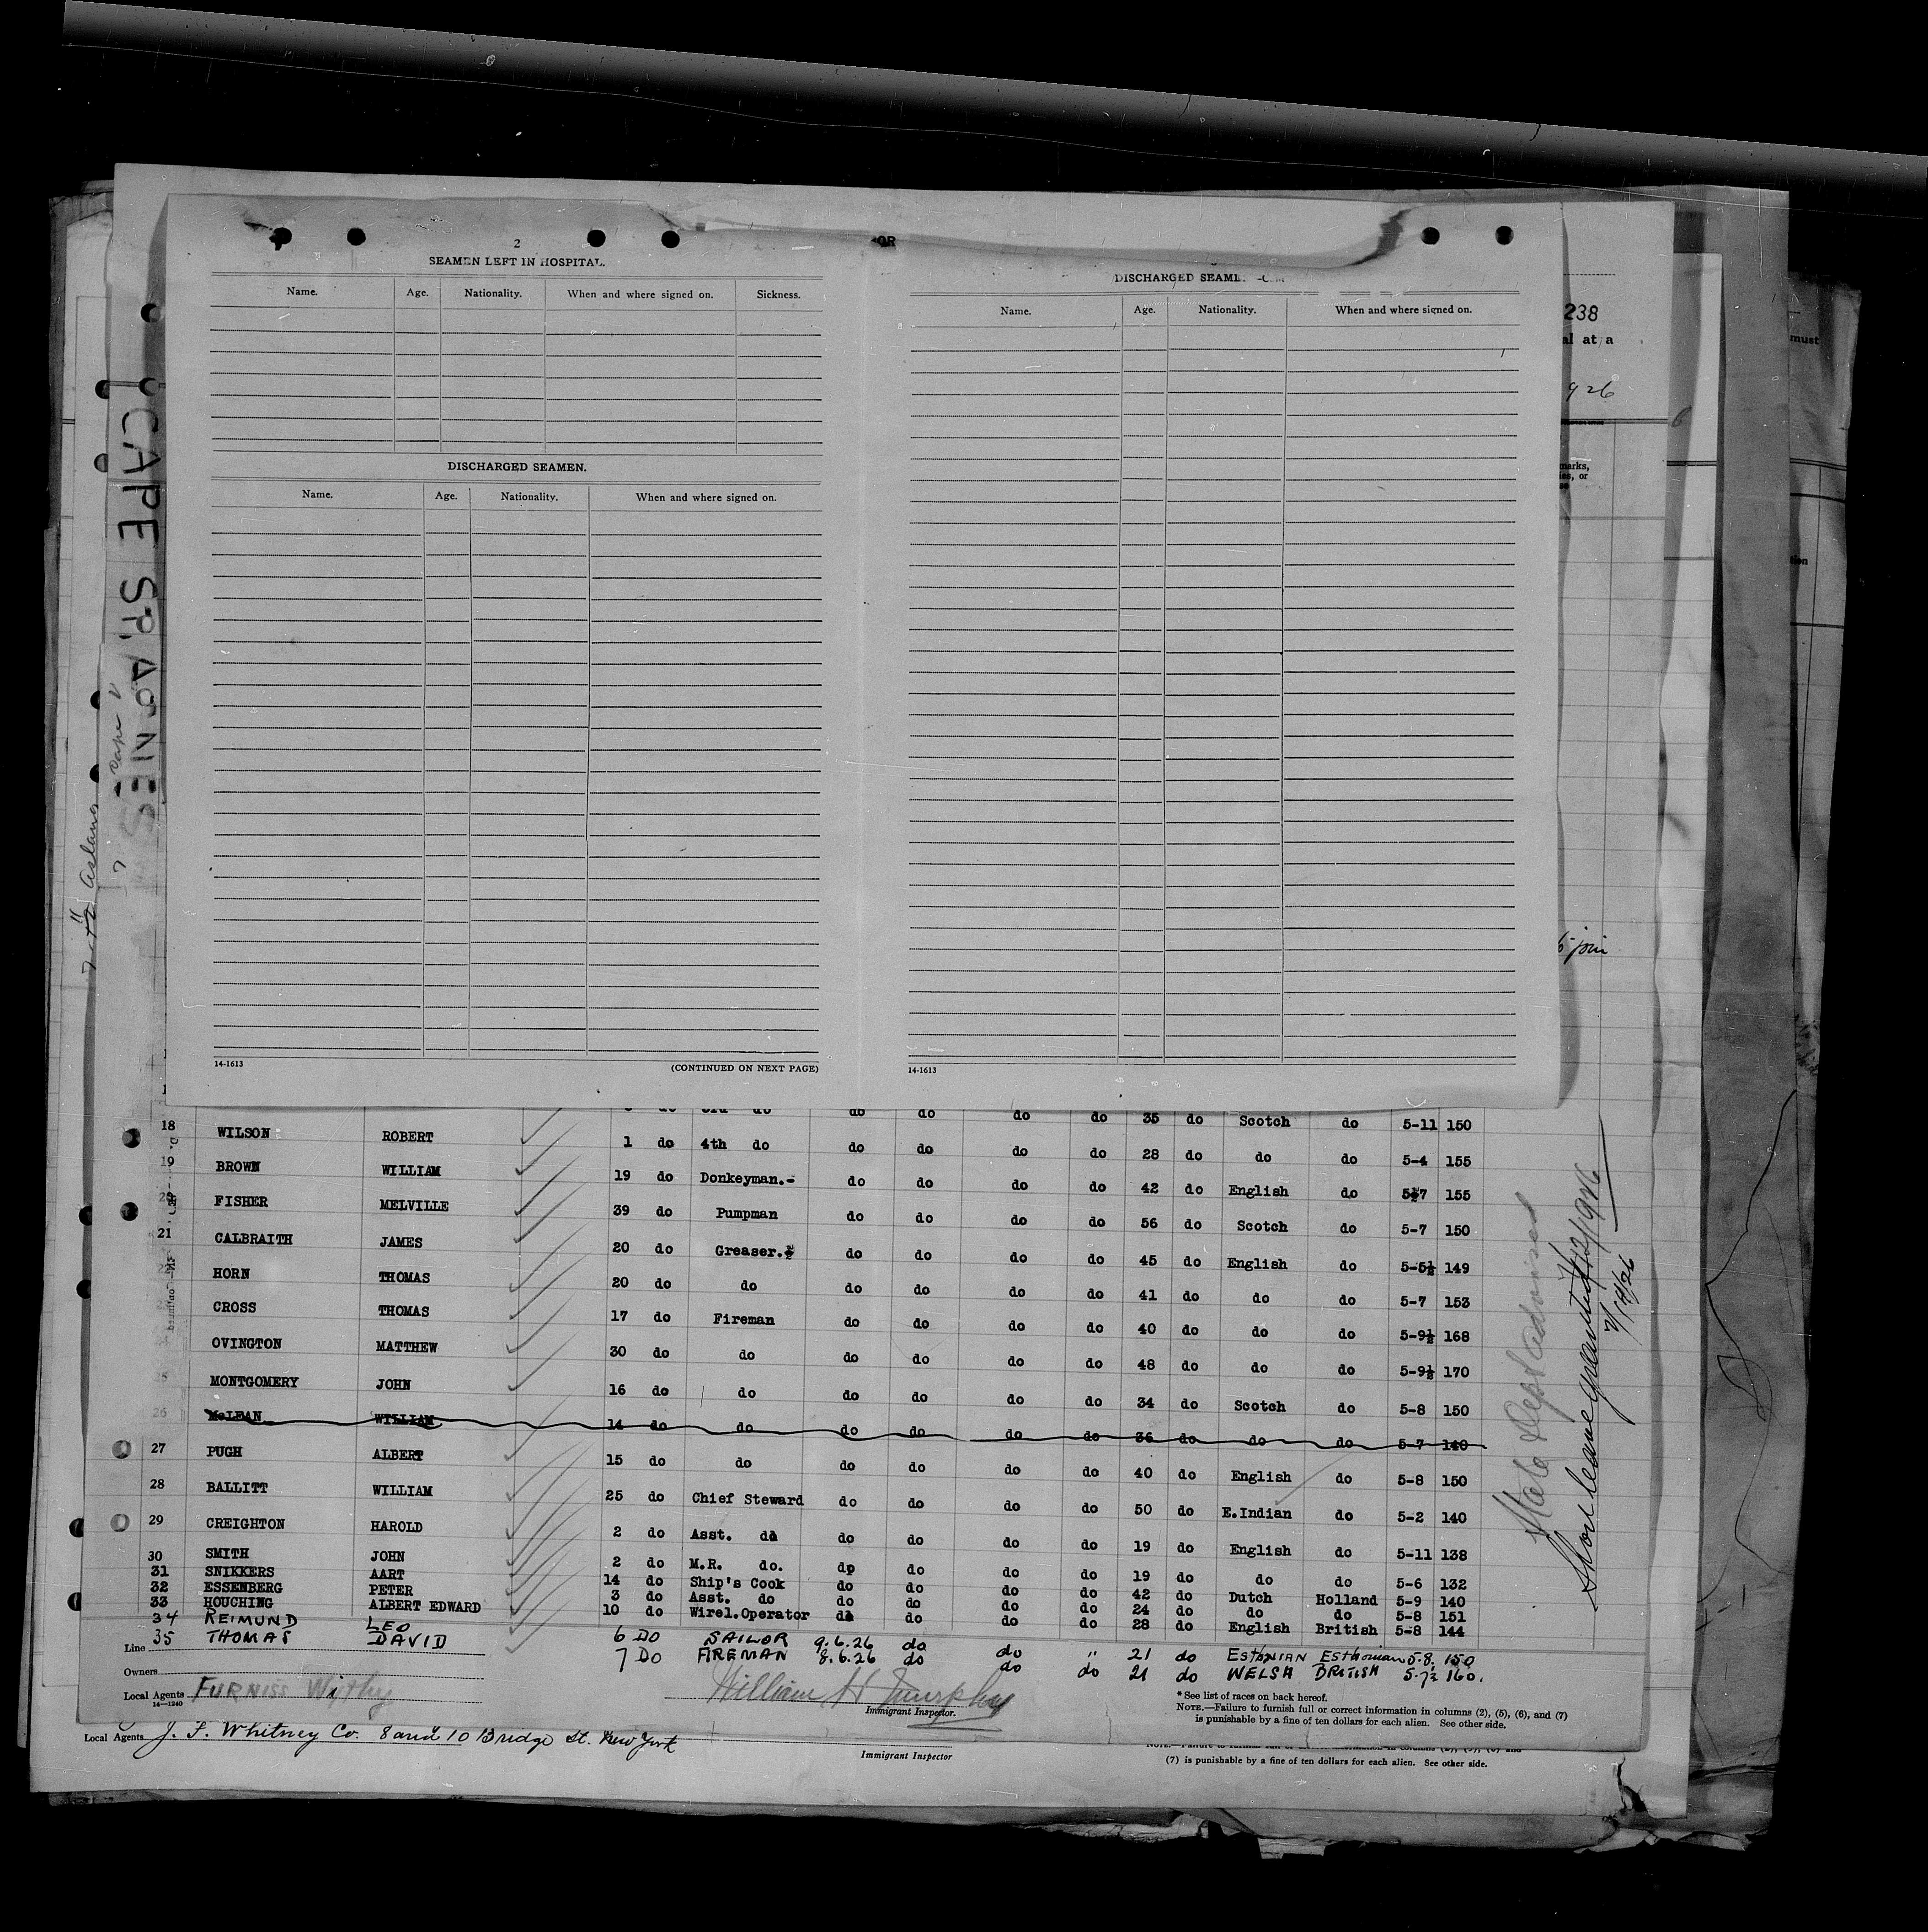 2
SEAMEN LEFT IN HOSPITAL.
Name. Age. Nationality. When and where signed on. Sickness.
DISCHARGED SEAMEN.
Name. Age. Nationality. When and where signed on.
14-1613
(CONTINUED ON NEXT PAGE)
OR
DISCHARGED
Name. Age. Nationality. When and where signed on.
14-1613
238
al at a
926
marks,
ies, or
must
tion
join
CAPE ST.
do do do do 35 do Scotch do 5-11 150
18 WILSON ROBERT 1 do 4th do do do do do 28 do do do 5-4 155
19 BROWN WILLIAM 19 do Donkeyman.- do do do do 42 do English do 5-7 155
20 FISHER MELVILLE 39 do Pumpman do do do do 56 do Scotch do 5-7 150
21 CALBRAITH JAMES 20 do Greaser. do do do do 45 do English do 5-5½ 149
22 HORN THOMAS 20 do do do do do do 41 do do do 5-7 153
23 CROSS THOMAS 17 do Fireman do do do do 40 do do do 5-9½ 168
OVINGTON MATTHEW 30 do do do do do do 48 do do do 5-9½ 170
MONTGOMERY JOHN 16 do do do do do do 34 do Scotch do 5-8 150
26 McLEAN WILLIAM 14 do do do do do do 36 do do do 5-7 140
27 PUGH ALBERT 15 do do do do do do 40 do English do 5-8 150
28 BALLITT WILLIAM 25 do Chief Steward do do do do 50 do E.Indian do 5-2 140
29 CREIGHTON HAROLD 2 do Asst. do do do do do 19 do English do 5-11 138
30 SMITH JOHN 2 do M.R. do. do do do do 19 do do do 5-6 132
31 SNIKKERS AART 14 do Ship's Cook do do do do 42 do Dutch Holland 5-9 140
32 ESSENBERG PETER 3 do Asst. do do do do do 24 do do do 5-8 151
33 HOUCHING ALBERT EDWARD 10 do Wirel.Operator do do do do 28 do English British 5-8 144
34 REIMUND LEO 6 DO SAILOR 9.6.26 do do " 21 do ESTHNIAN Esthonian 5-8. 150
35 THOMAS DAVID 7 DO FIREMAN 8.6.26 do do do 21 do WELSH BRITISH 5-7½ 160.
Line
Owners
Local Agents FURNISS Withy
14—1240
William H Murphy
Immigrant Inspector.
* See list of races on back hereof.
NOTE.—Failure to furnish full or correct information in columns (2), (5), (6), and (7)
is punishable by a fine of ten dollars for each alien. See other side.
State Dept advised
Shore leave granted 7/12/1926
7/14/26
Local Agents J. F. Whitney Co. 8 and 10 Bridge St. New York
Immigrant Inspector
(7) is punishable by a fine of ten dollars for each alien. See other side.